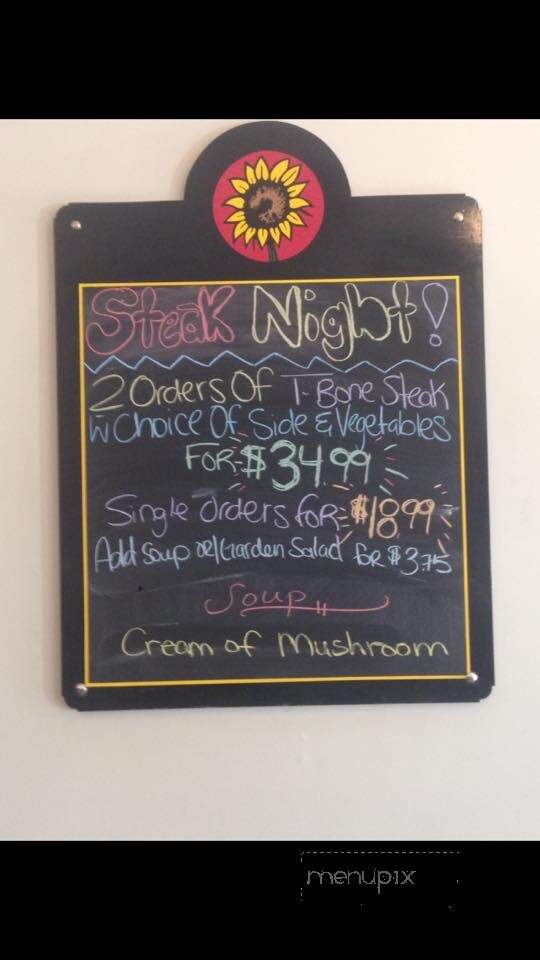 Steak Night!
2 Orders Of T-Bone Steak
w Choice Of Side & Vegetables
FOR $34.99
Single Orders for $18.99
Add Soup or/Garden Salad for $3.75
Soup
Cream of Mushroom
menupix